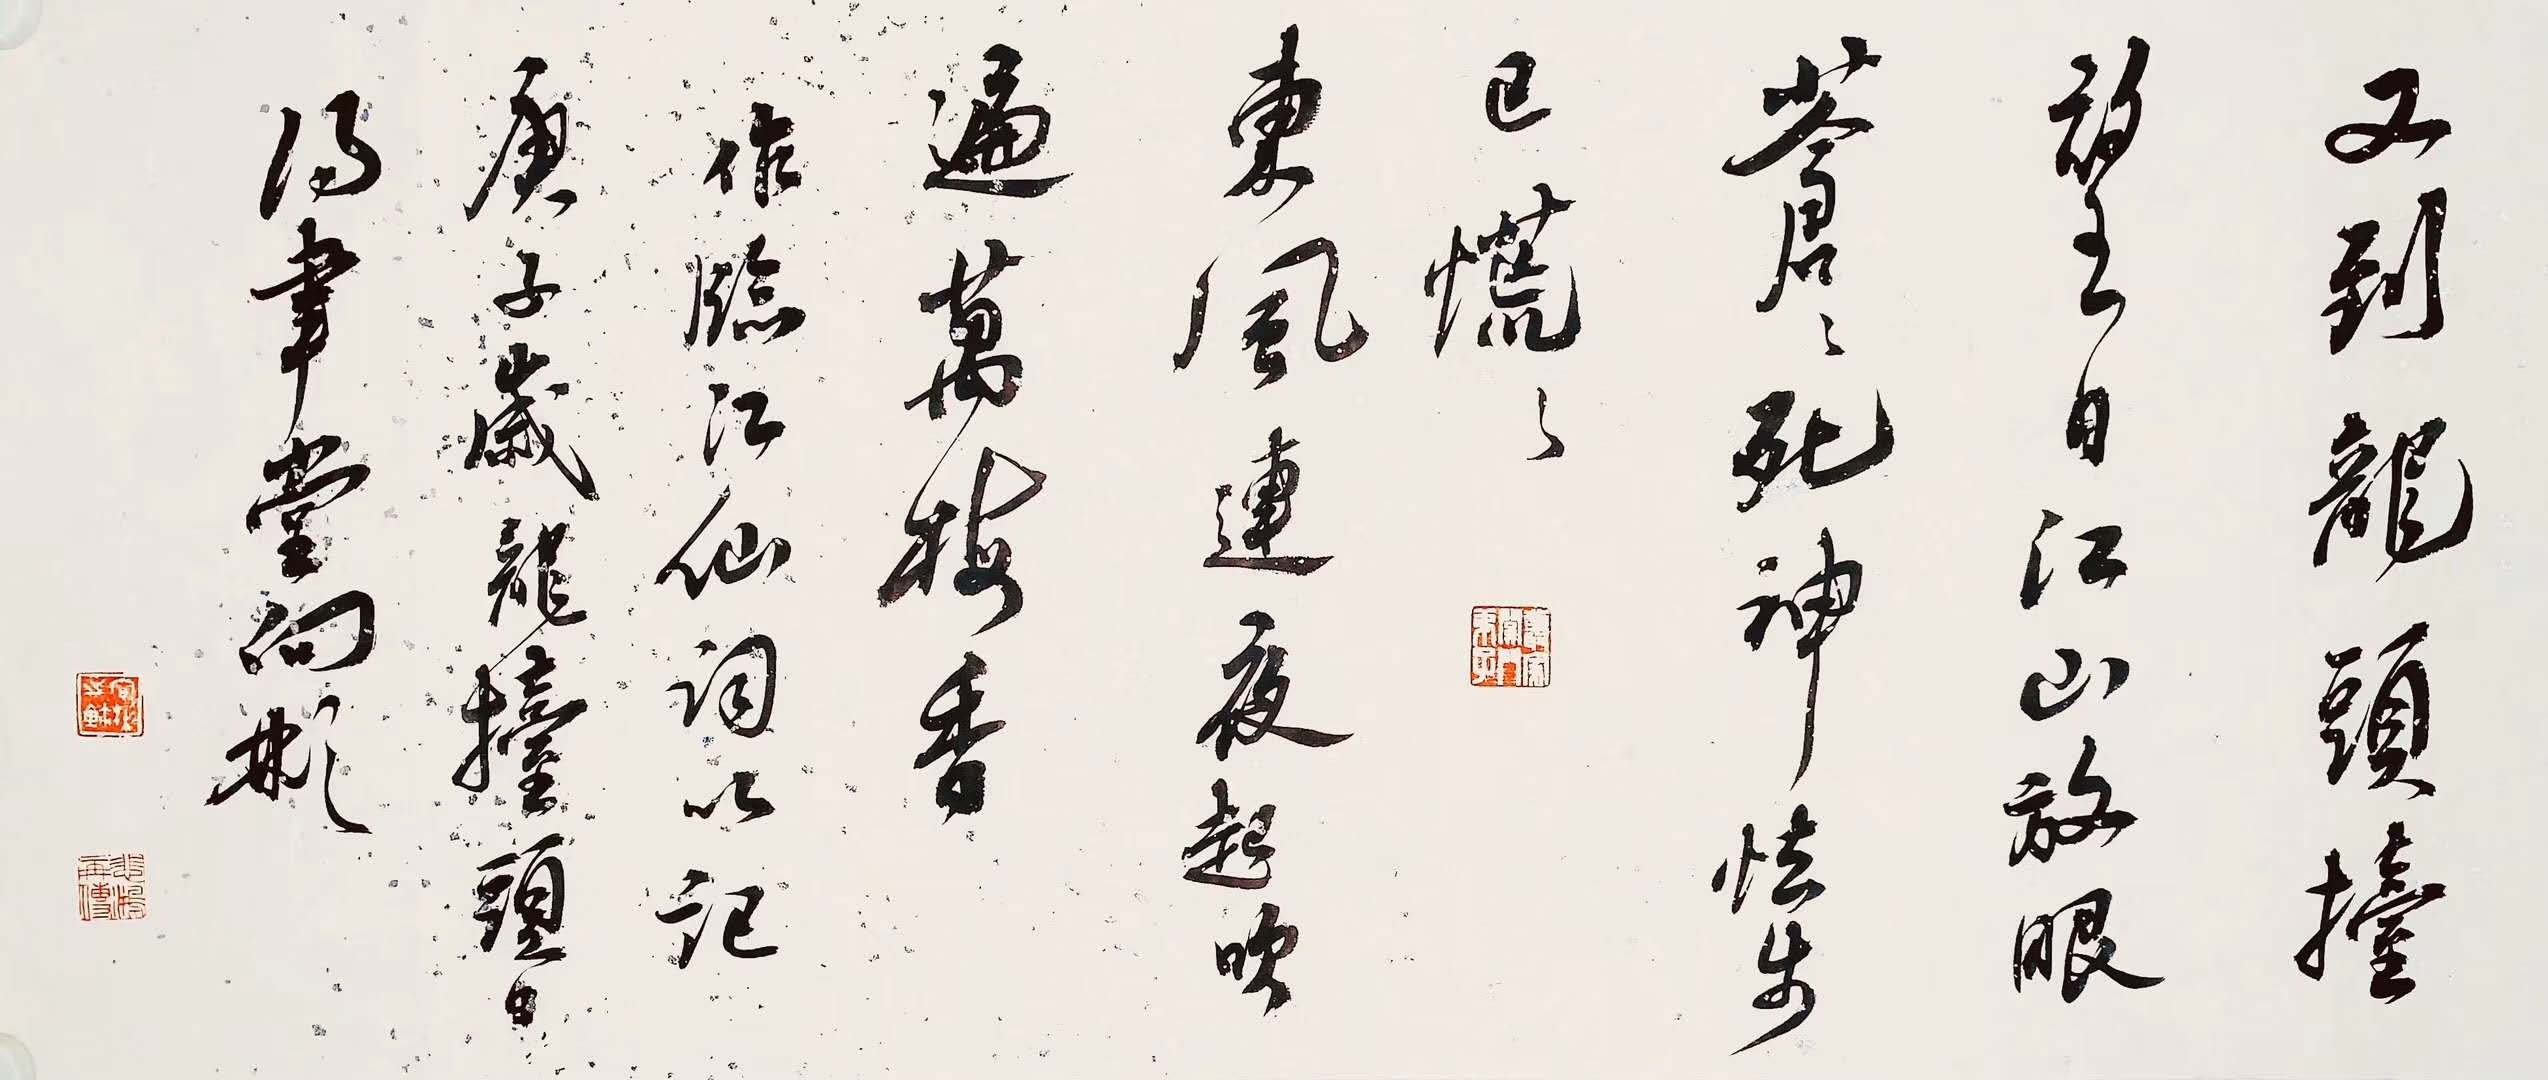 又到龍頭擡
望日江山放眼
蒼君々死神怯步
已慌々
東風連夜起吹
遍萬梅香
作臨江仙詞以記
庚子歲龍擡頭日
得聿堂向彬